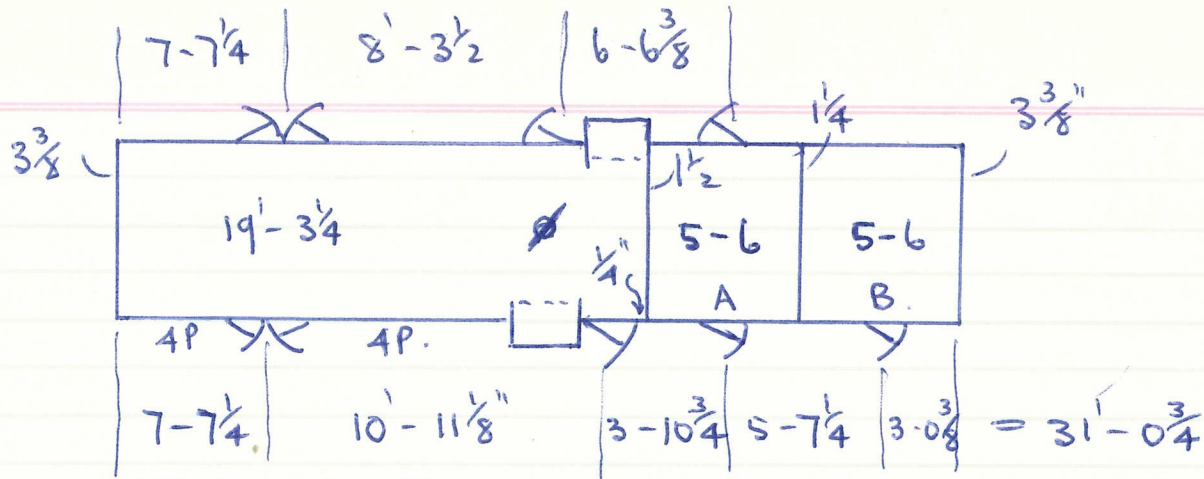 7-7¼ 8'-3½ 6-6⅜
3⅜ 1¼ 3⅜"
1½
19'-3¼ ø 5-6 5-6
¼" A B.
4P 4P.
7-7¼ 10'-11⅛" 3-10¾ 5-7¼ 3-0⅜ = 31'-0¾